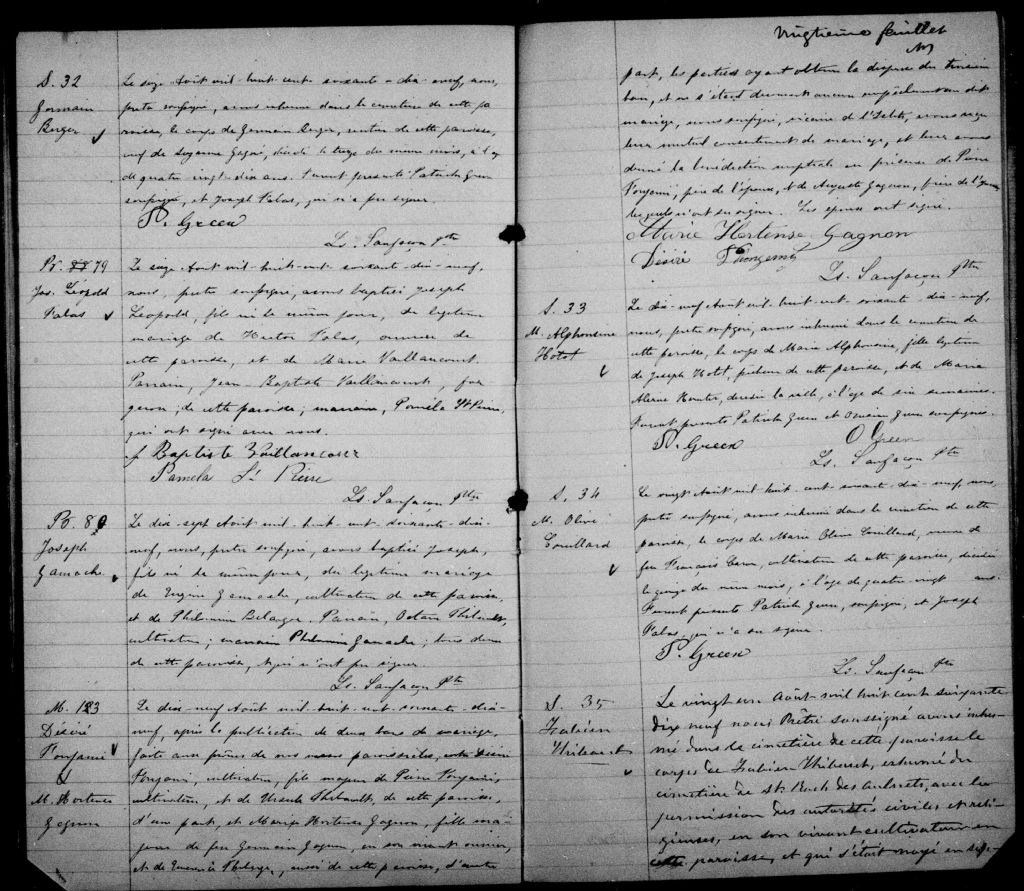 S. 32
Germain
Berger
Le seize Août mil huit cent soixante-dix-neuf, nous,
prêtre soussigné, avons inhumé dans le cimetière de cette pa
roisse, le corps de Germain Berger, rentier de cette paroisse,
veuf de Suzanne Gagné, décédé le treize du même mois, à l'age
de quatre vingt-dix ans. Furent présents Patrick Green
soussigné, et Joseph Palas, qui n'a pu signer.
P. Green
Ls. Sanfaçon Ptre
B. 79
Jos. Léopold
Palas
Le seize Août mil huit cent soixante-dix-neuf,
nous, prêtre soussigné, avons baptisé Joseph
Léopold, fils né le même jour, du légitime
mariage de Hector Palas, ouvrier de
cette paroisse, et de Marie Vaillancourt.
Parrain, Jean-Baptiste Vaillancourt, for-
geron, de cette paroisse; marraine, Paméla St Pierre,
qui ont signé avec nous.
J Baptiste Vaillancour
Pamela St Pierre
Ls. Sanfaçon Ptre
B. 80
Joseph
Gamache
Le dix-sept Août mil huit cent soixante-dix-
neuf, nous, prêtre soussigné, avons baptisé Joseph,
fils né le même jour, du légitime mariage
de Eugène Gamache, cultivateur de cette paroisse,
et de Philomène Bélanger. Parrain, Octave Thibault,
cultivateur; marraine Philomène Gamache; tous deux
de cette paroisse, qui n'ont pu signer
Ls. Sanfaçon Ptre
M. 13
Désiré
Fongémi
&
M. Hortense
Gagnon
Le dix-neuf Août mil huit cent soixante-dix-
neuf, après la publication de deux bans de mariage,
faite aux prônes de nos messes paroissiales, entre Désiré
Fongémi, cultivateur, fils majeur de Pierre Fongémi,
cultivateur, et de Ursule Thibault, de cette paroisse,
d'une part, et Marie Hortense Gagnon, fille ma-
jeure de feu Germain Gagnon, en son vivant ouvrier,
et de, aussi de cette paroisse, d'autre
Vingtième feuillet
part, les parties ayant obtenu la dispense du troisième
ban, et ne s'étant découvert aucun empêchement au dit
mariage, nous soussigné, vicaire de l'Islet, avons reçu
leur mutuel consentement de mariage, et leur avons
donné la bénédiction nuptiale en présence de Pierre
Fongémi, père de l'époux, et de Auguste Gagnon, frère de l'épouse,
lesquels n'ont su signer. Les époux ont signé.
Marie Hortense Gagnon
Désiré Fongemy
Ls. Sanfaçon Ptre
S. 33
M. Alphonsine
Hotot
Le dix-neuf Août mil huit cent soixante-dix-neuf,
nous, prêtre soussigné, avons inhumé dans le cimetière de
cette paroisse, le corps de Marie Alphonsine, fille légitime
de Joseph Hotot, pêcheur de cette paroisse, et de Marie
décédée la veille, à l'age de six semaines.
Furent présents Patrick Green et Onésime Green soussignés.
P. Green
O Green
Ls. Sanfaçon Ptre
S. 34
M. Olive
Couillard
Le vingt Août mil huit cent soixante-dix-neuf, nous,
prêtre soussigné, avons inhumé dans le cimetière de cette
paroisse, le corps de Marie Olive Couillard, veuve de
feu François Caron, cultivateur de cette paroisse, décédée
le quinze du même mois, à l'age de quatre-vingt ans.
Furent présents Patrick Green, soussigné, et Joseph
Palas, qui n'a su signer.
P. Green
Ls. Sanfaçon Ptre
S. 35
Fabien
Thibault
Le vingt un Août mil huit cent soixante
dix neuf nous Prêtre soussigné avons inhu-
mé dans la cimetière de cette paroisse le
corps de Fabien Thibault, exhumé du
cimetière de St. Roch des Aulnets, avec la
permission des autorités civiles et reli-
gieuses, en son vivant cultivateur en
cette paroisse, et qui s'était noyé en sep-